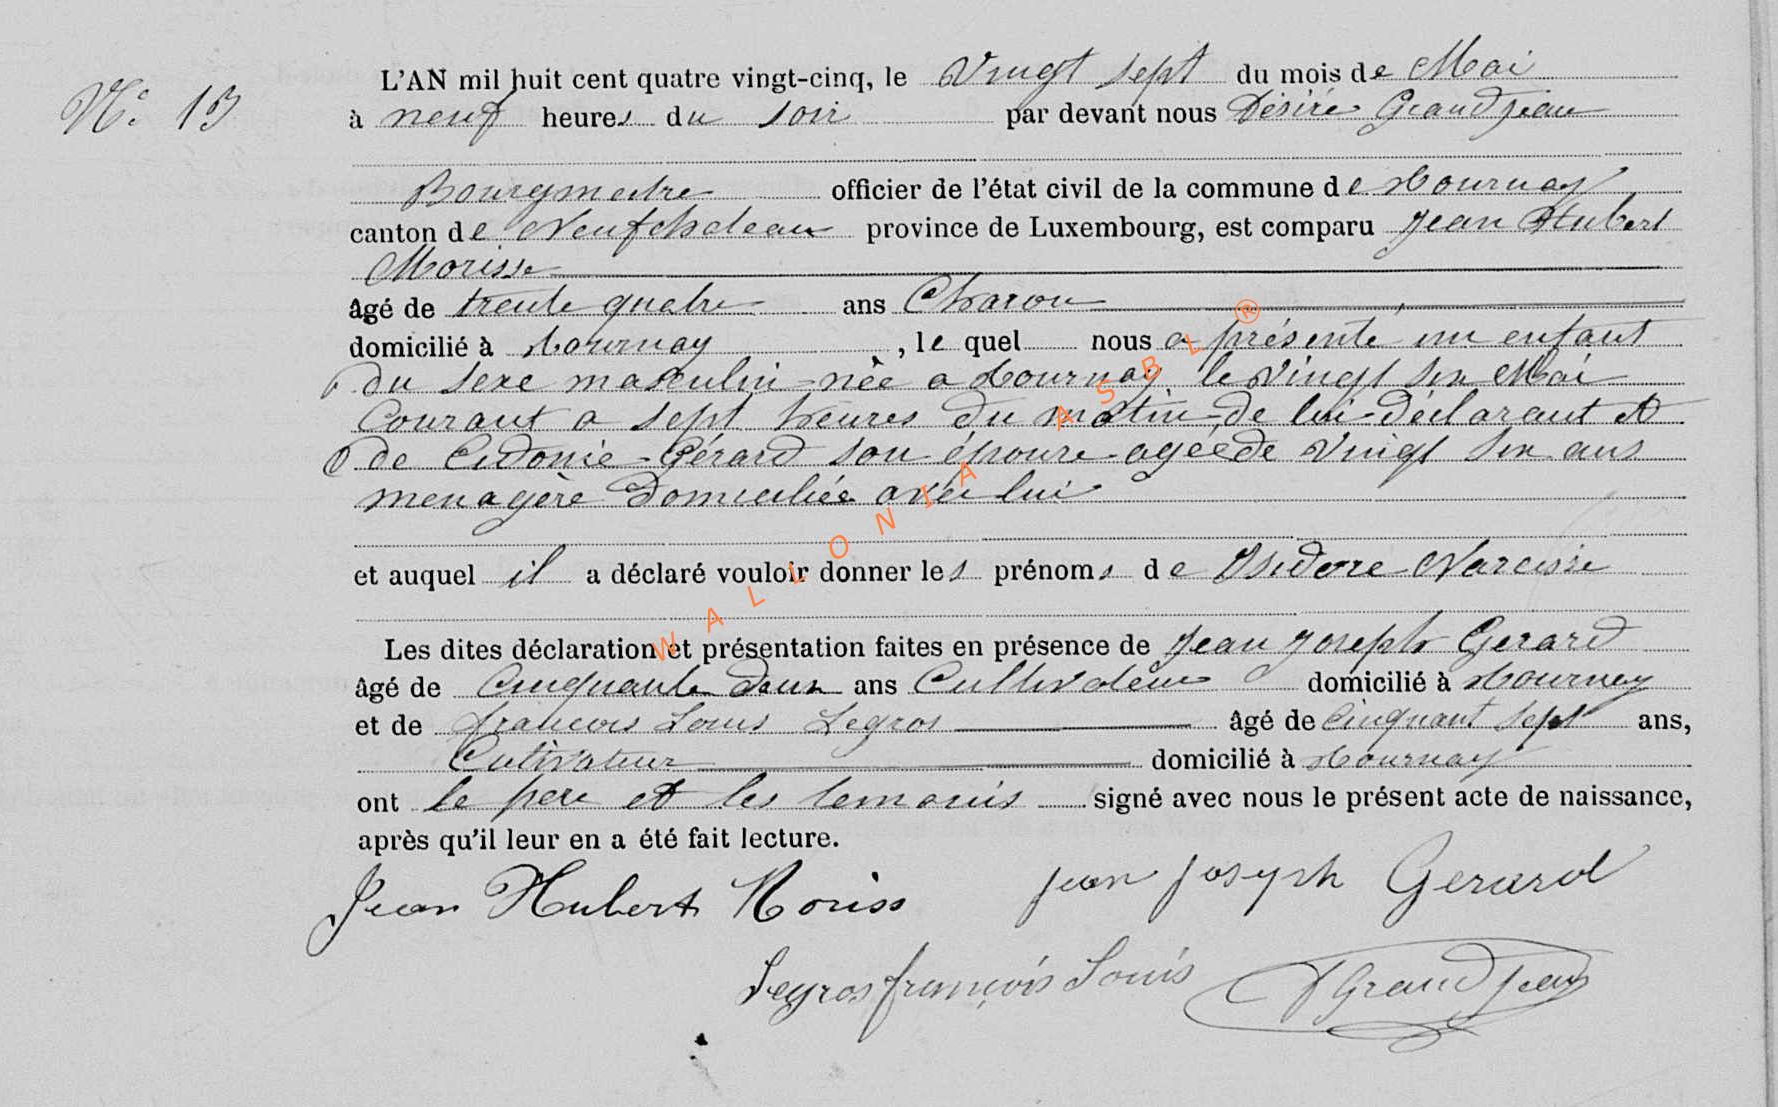 N° 13
L'AN mil huit cent quatre vingt-cinq, le Vingt sept du mois de Mai
à neuf heures du soir par devant nous Désiré Grandjean
Bourgmestre officier de l'état civil de la commune de Tournay
canton de Neufchateau province de Luxembourg, est comparu Jean Hubert
Morisse
âgé de trente quatre ans Charon
domicilié à Tournay, le quel nous a présenté un enfant
du sexe masculin née a Tournay le Vingt six Mai
Courant a sept heures du matin de lui déclarant et
de Sidonie Gérard son épouse agée de Vingt six ans
menagère domiciliée avec lui
et auquel il a déclaré vouloir donner les prénoms de Isidore Narcisse
Les dites déclaration et présentation faites en présence de Jean Joseph Gerard
âgé de Cinquante deux ans Cultivateur domicilié à Tournay
et de francois Louis Legros âgé de Cinquant sept ans,
Cultivateur domicilié à Tournay
ont le pere et les temoins signé avec nous le présent acte de naissance,
après qu'il leur en a été fait lecture.
Jean Hubert Moriss jean joseph Gerard
Legros françois Louis D Grandjean
WALLONIA ASBL ®